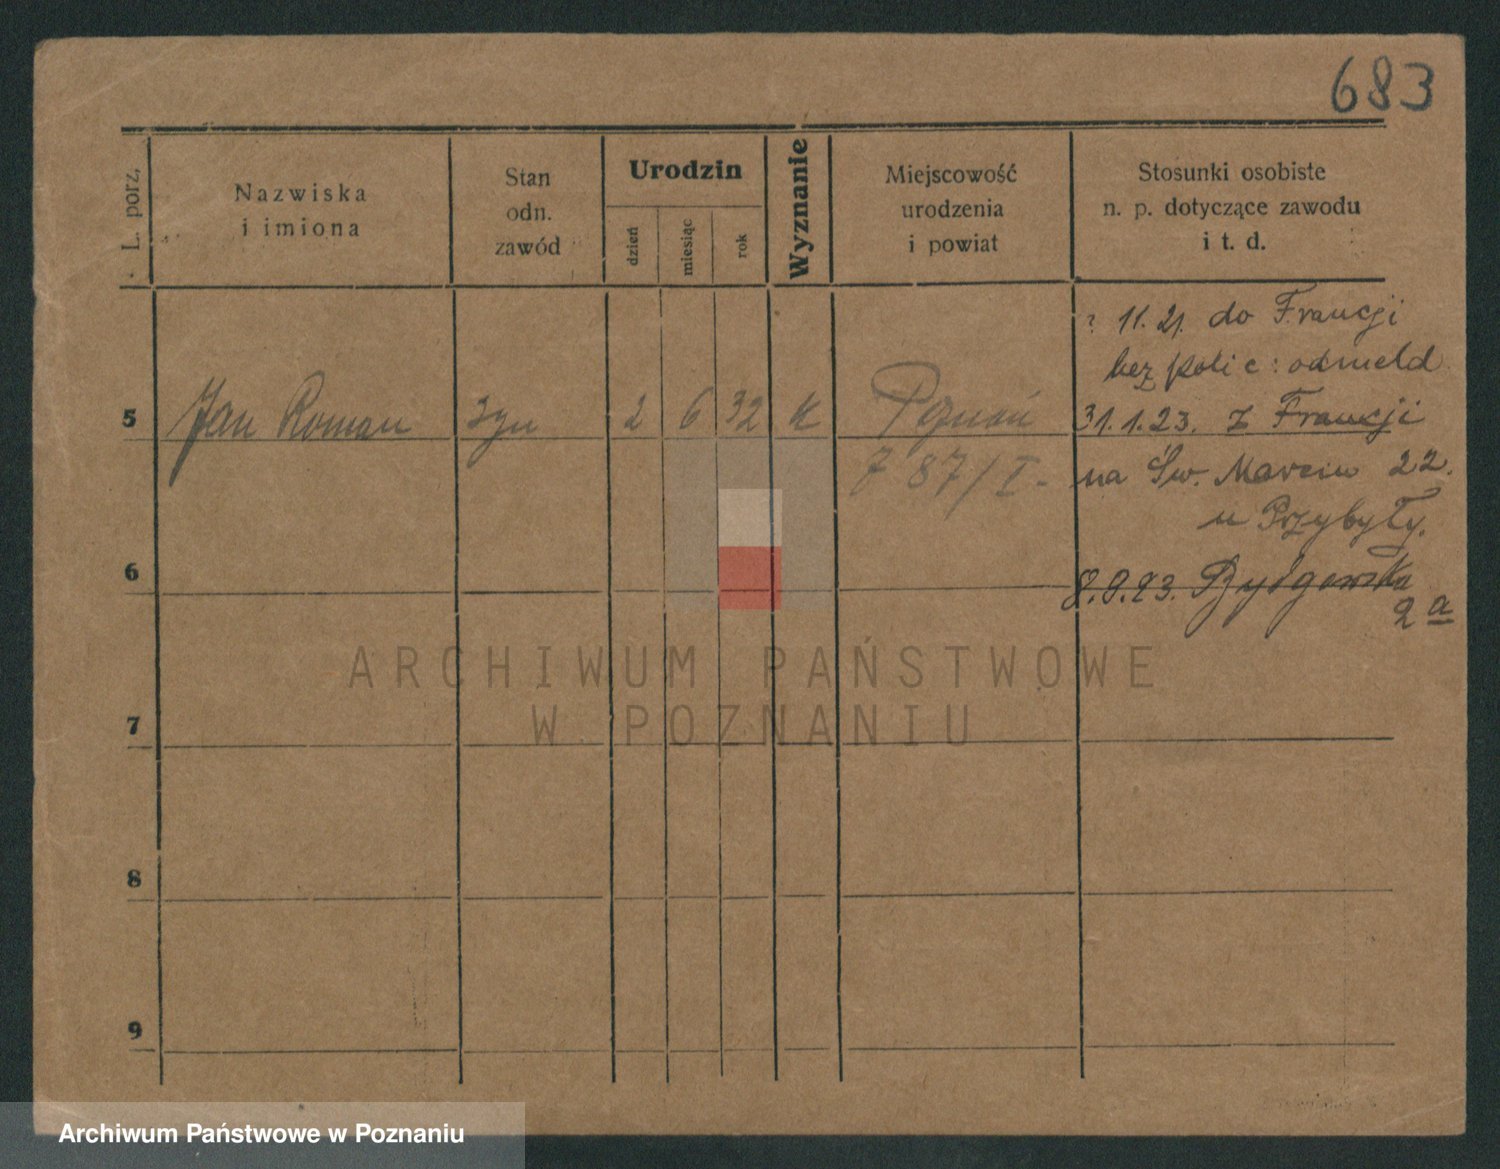 683
L. porz.
Nazwiska
i imiona
Stan
odn.
zawód
Urodzin
dzień
miesiąc
rok
Wyznanie
Miejscowość
urodzenia
i powiat
Stosunki osobiste
n. p. dotyczące zawodu
i t. d.
? 11. 21. do Francji
bez polic: odmeld
5 Jan Roman syn 2 6 32 k Poznań 31.1.23. z Francji
87/I - na Św. Marcin 22.
u Przybyły.
6
8.9.23. Bydgowska
2 a
7
8
9
ARCHIWUM PAŃSTWOWE
W POZNANIU
Archiwum Państwowe w Poznaniu